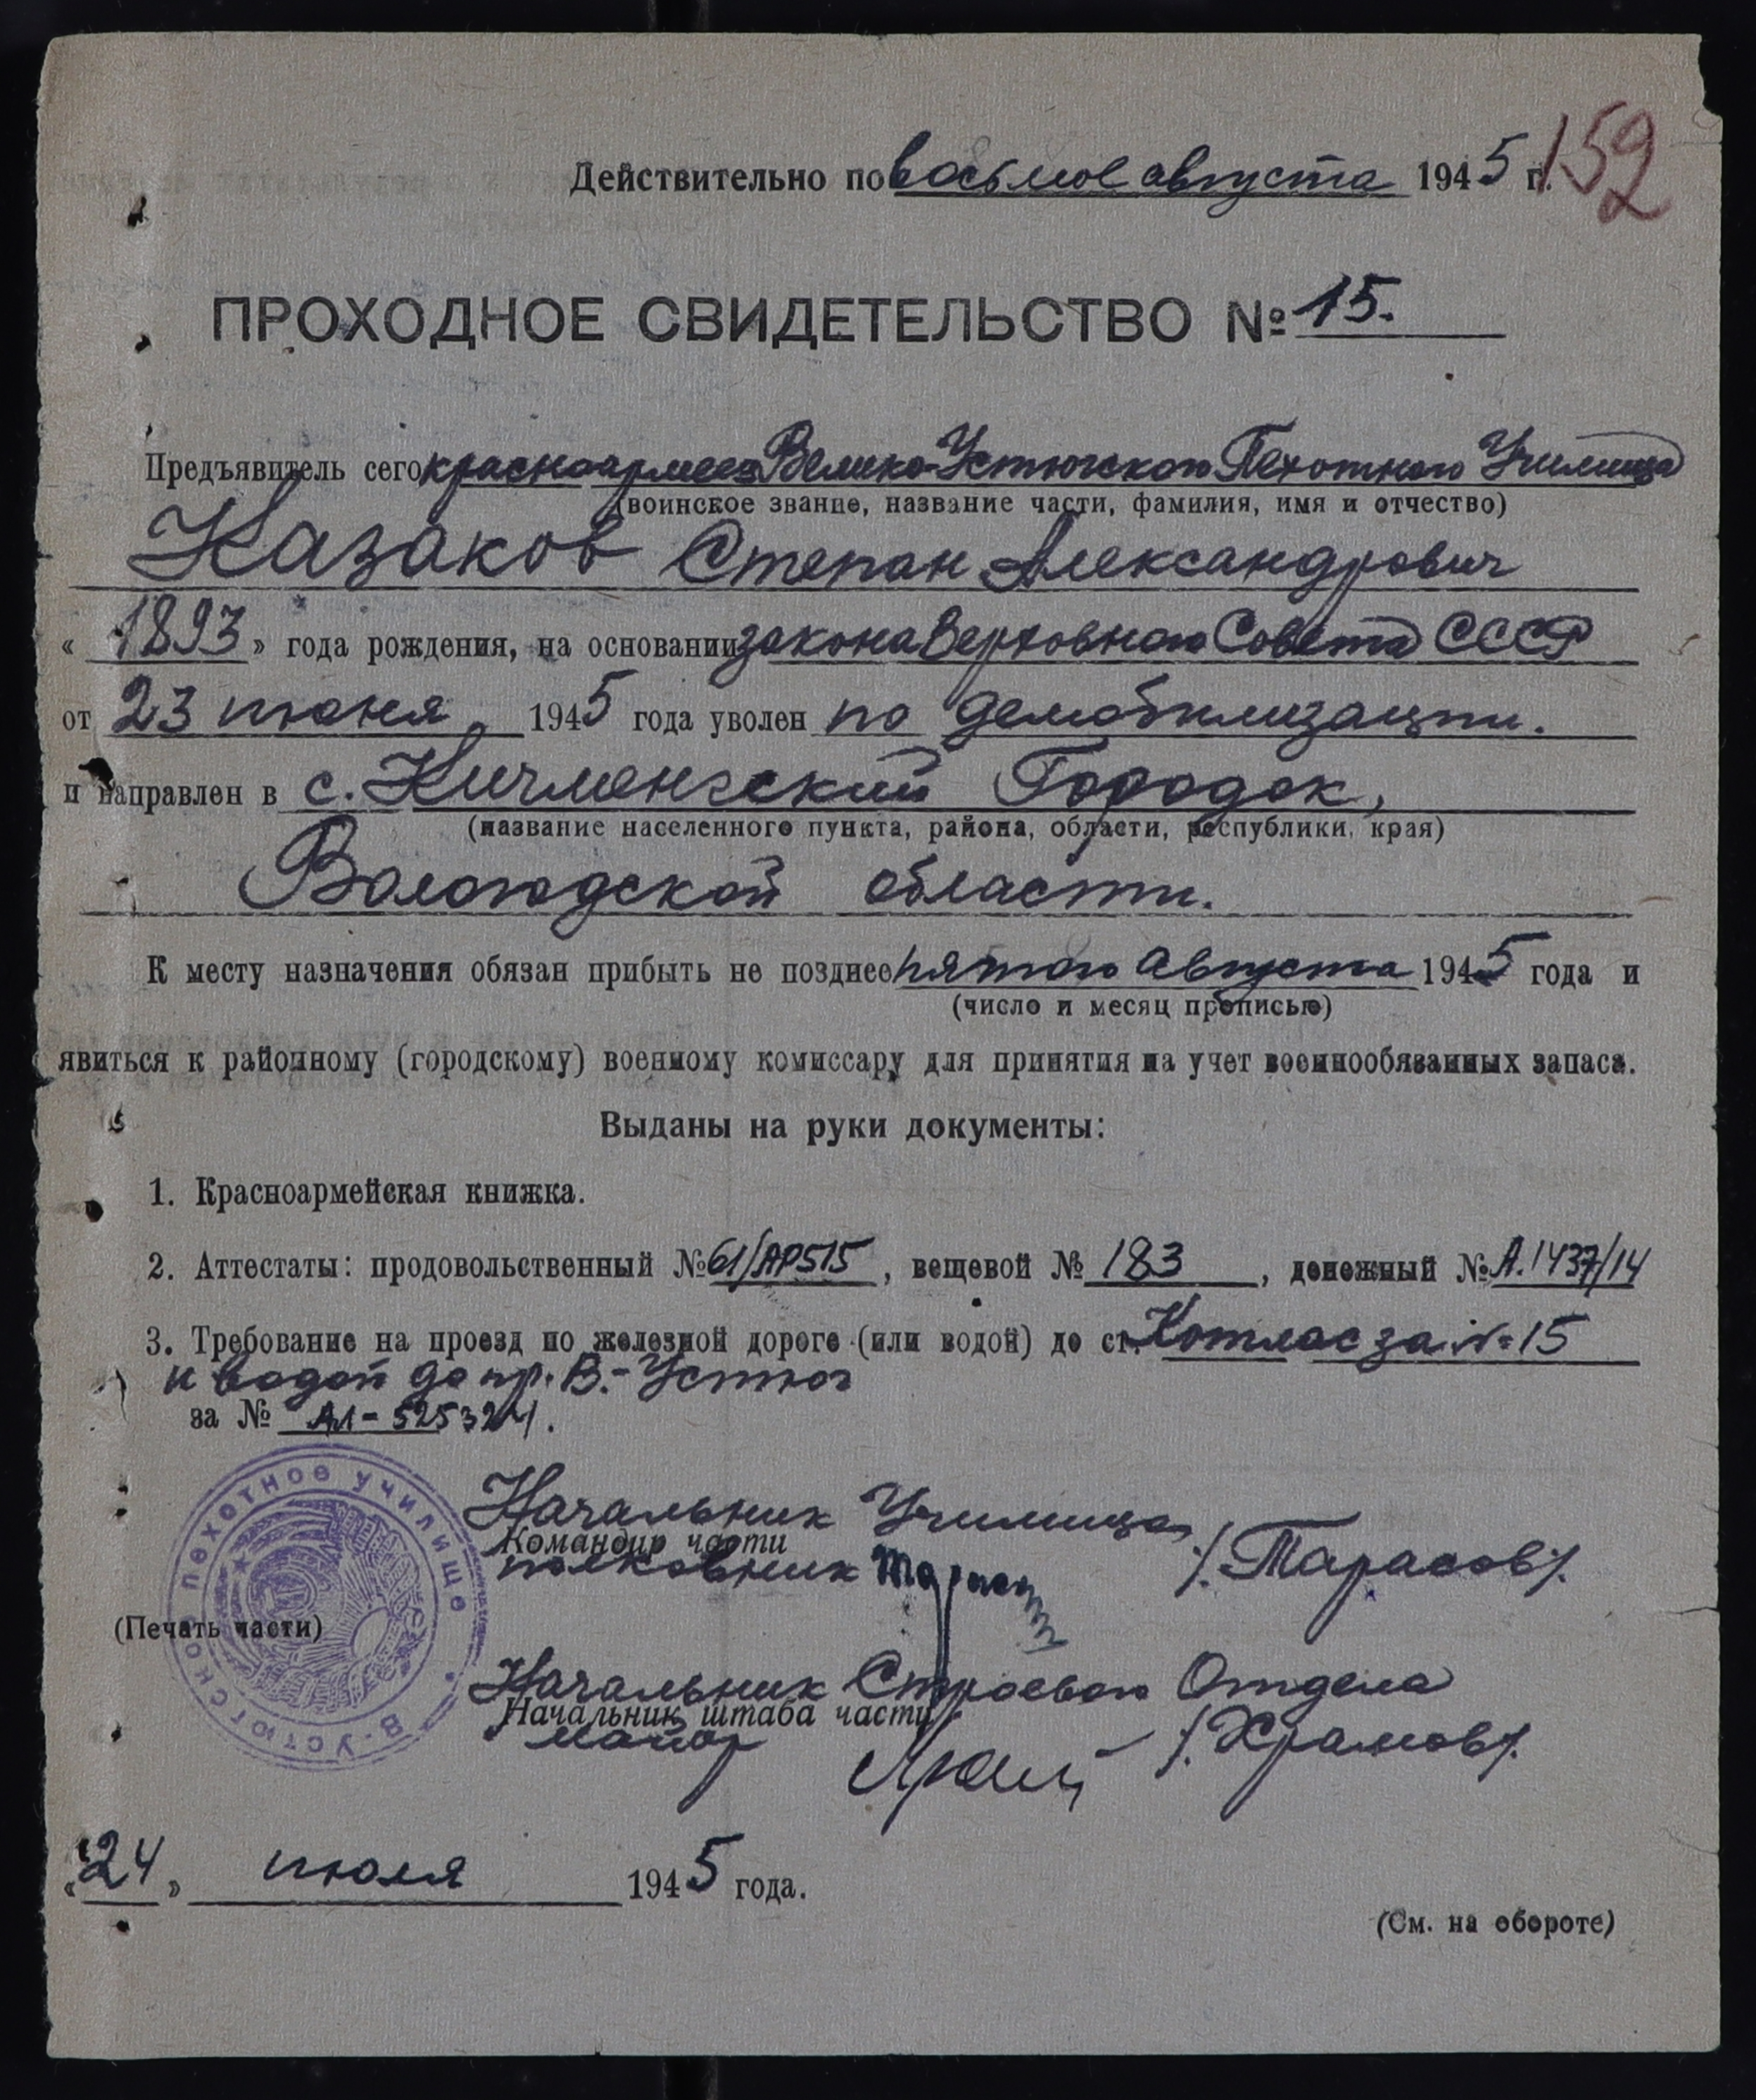 152
Действительно по восьмое августа 1945 г.
ПРОХОДНОЕ СВИДЕТЕЛЬСТВО № 15.
Предъявитель сего красноармеец Велико-Устюгского Пехотного Училища
(воинское звание, название части, фамилия, имя и отчество)
Казаков Степан Александрович
« 1893 » года рождения, на основании закона Верховного Совета СССР
от 23 июня 1945 года уволен по демобилизации.
и направлен в с. Кичменгский Городок,
(название населенного пункта, района, области, республики, края)
Вологодской области.
К месту назначения обязан прибыть не позднее пятого августа 1945 года и
(число и месяц прописью)
явиться к районному (городскому) военному комиссару для принятия на учет военнообязанных запаса.
Выданы на руки документы:
1. Красноармейская книжка.
2. Аттестаты: продовольственный № 61/АР515, вещевой № 183, денежный № А.1437/14
3. Требование на проезд по железной дороге (или водой) до ст. Котлас за № 15
и водой до пр. В.-Устюг
за № АЛ-525324.
В-УСТЮГСКОЕ ПЕХОТНОЕ УЧИЛИЩЕ
Начальник Училища
Командир части
полковник /.Тарасов/.
(Печать части)
Начальник Строевого Отдела
Начальник штаба части
майор /.Храмов/.
« 24 » июля 1945 года.
(См. на обороте)